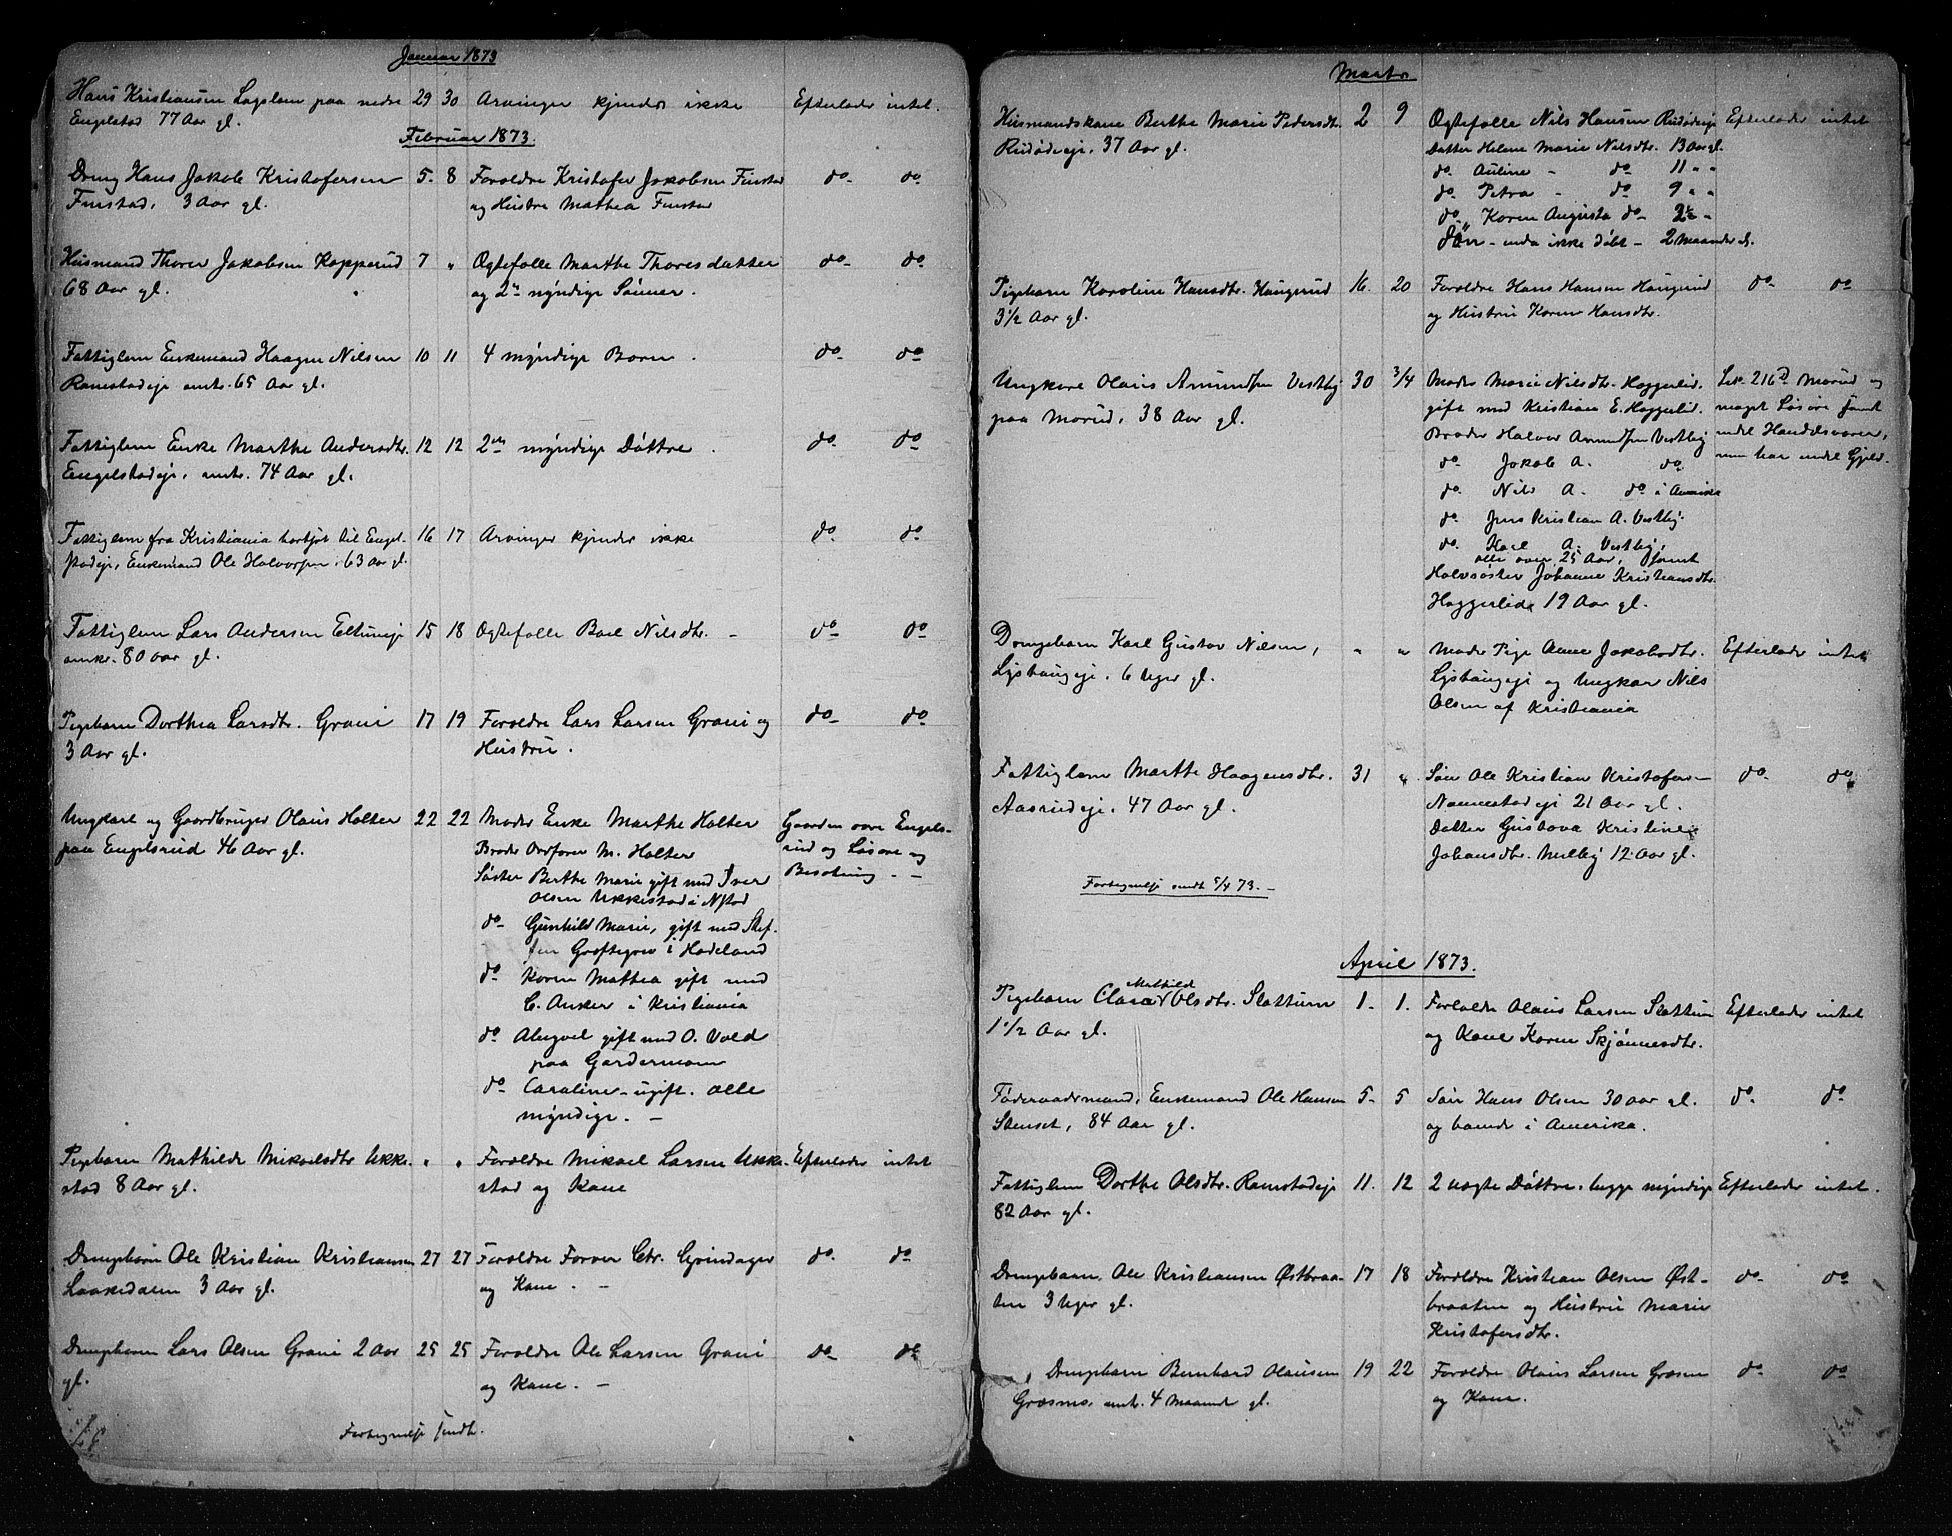 Januar 1873
Hans Kristiansen Lagslem paa nedre 29 30 Arvinger kjendes ikke Efterlader intet.
Engelstad 77 Aar gl.
Februar 1873.
Dreng Hans Jakob Kristofersen 5. 8 Foreldre Kristofer Jakobsen Finstad do- do-
Finstad, 3 Aar gl. og Hustru Mathea Finstad
Husmand Thorer Jakobsen Kopperud 7 " Egtefolle Marthe Thoresdatter do- do-
68 Aar gl. og 2de myndige Sønner.
Fattiglem Enkemand Haagen Nilsen 10 11 4 myndige Born. do- do-
Ramstadeje omtr. 65 Aar gl.
Fattiglem Enke Marthe Andersdtr. 12 12 2de myndige Døttre. do- do-
Engelstadeje, omtr. 74 Aar gl.
Fattiglem fra Kristiania bortsat til Engel- 16 17 Arvinger kjendes ikke do- do-
stadeje, Enkemand Ole Halvorsen. 63 aar gl.
Fattiglem Lars Andersen Eltuneje 15 18 Egtefolle Boel Nilsdtr. - do- do-
omkr. 80 aar gl.
Pigebarn Dorthea Larsdtr. Grani 17 19 Foreldre Lars Larsen Grani og do- do-
3 Aar gl. Hustru.
Ungkarl og Gaardbruger Olaus Holter 22 22 Moder Enke Marthe Holter Gaarden øvre Engels-
paa Engelsrud 46 Aar gl. Broder Ordfører M. Holter rud og Løsøre og
Søster Berthe Marie gift med Iver Besetning. -
Olsen Ukkestad i Nstad
do- Gunhild Marie, gift med Stef-
fen Groftegrev i Hadeland
do- Karen Mathea gift med
C. Anker i Kristiania
do- Alugvel gift med O. Vold
paa Gardermoen
do- Caroline - ugift. alle
myndige. -
Pigebarn Mathilde Mikaelsdtr Ukke- " " Foreldre Mikael Larsen Ukke- Efterlader intet
stad 8 Aar gl. stad og Kone
Drengebarn Ole Kristian Kristiansen 27 27 Foreldre Chr. Grindager do- do-
Laakedalen 3 Aar gl. og Kone. -
Drengebarn Lars Olsen Grani 2 Aar 25 25 Foreldre Ole Larsen Grani do- do-
gl. og Kone. -
Fortegnelse sendt.
Marts
Husmandskone Berthe Marie Pedersdtr. 2 9 Egtefolle Nils Hansen Rudødeje Efterlader intet
Rudødeje, 37 Aar gl. Datter Helene Marie Nilsdtr. 13 Aar gl.
do. Auline - do- 11 " "
do- Petra - do- 9 " "
do, Karen Augusta do- 2½ "
Søn - enda ikke døbt - 2 Maaneder gl.
Pigebarn Karoline Hansdtr. Haugerud 16. 20 Foreldre Hans Hansen Haugerud do- do-
3 1/2 Aar gl. og Hustru Karen Hansdtr.
Ungkare Olaus Amundsen Vestby 30 3/4 Moder Marie Nilsdtr. Haggerlid. Lek. 216 D Morud og
paa Morud, 38 Aar gl. gift med Kristian E. Haggerlid. meget Løsøre samt
Broder Halvor Amundsen Vestby endel Handelsvarer,
do. Jakob A. do- men har endel Gjeld.
do. Nils A. do- i Amerika
do. Jens Kristian A. Vestby
do. Karl A. Vestby,
alle over 25 Aar, samt
Halvsøster Johanne Kristiansdtr.
Haggerlid 19 Aar gl.
Drengebarn Karl Gustav Nilsen, " " Moder Pige Anne Jakobsdtr. Efterlader intet
Lyshaugeje. 6 Uger gl. Lyshaugeje og Ungkar Nils
Olsen af Kristiania
Fattiglem Marthe Haagensdtr. 31 " Søn Ole Kristian Kristofers- do- do-
Aasrudeje. 47 Aar gl. Nannestadeje 21 Aar gl.
Datter Gustava Kristine
Johansdtr. Melby 12 Aar gl.
Fortegnelse sendt 5/4 73. -
April 1873.
Mathilde
Pigebarn Clara Olsdtr. Slattum 1. 1. Foreldre Olaus Larsen Slattum Efterlader intet
1 1/2 Aar gl. og Kone Karen Skjønnesdtr.
Føderaadsmand, Enkemand Ole Hansen 5. 5 Søn Hans Olsen 30 aar gl. do- do-
Stenset, 84 Aar gl. og boende i Amerika.
Fattiglem Dorthe Olsdtr. Ramstadeje 11. 12 2 uegte Døttre. begge myndige Efterlader intet.
82 Aar gl.
Drengebarn. Ole Kristiansen Østbraa- 17 18 Foreldre Kristian Olsen Øst- do- do-
ten 3 Uger gl. braaten og Hustru Marie
Kristofersdtr.
Drengebarn Bernhard Olausen 19 22 Foreldre Olaus Larsen Græsm do- do-
Græsmo. omtr. 4 Maaneder gl. og Kone.